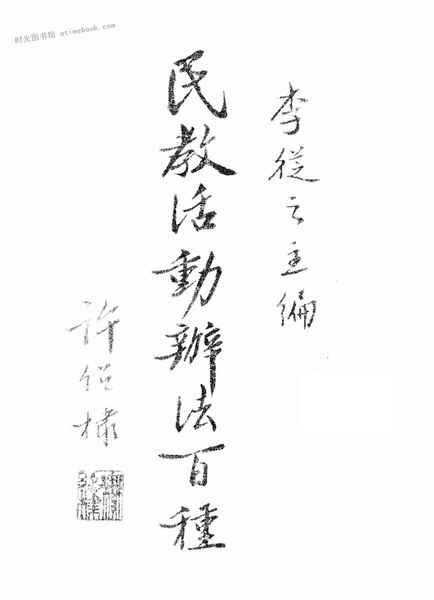 时光图书馆 etimebook.com
李從之主編
民教活動辦法百種
許紹棣